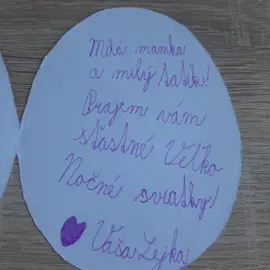 Milá mamka
a milý tatík!
Prajem vám
šťastné Veľko
Nočné sviatky!
Vaša Lejka